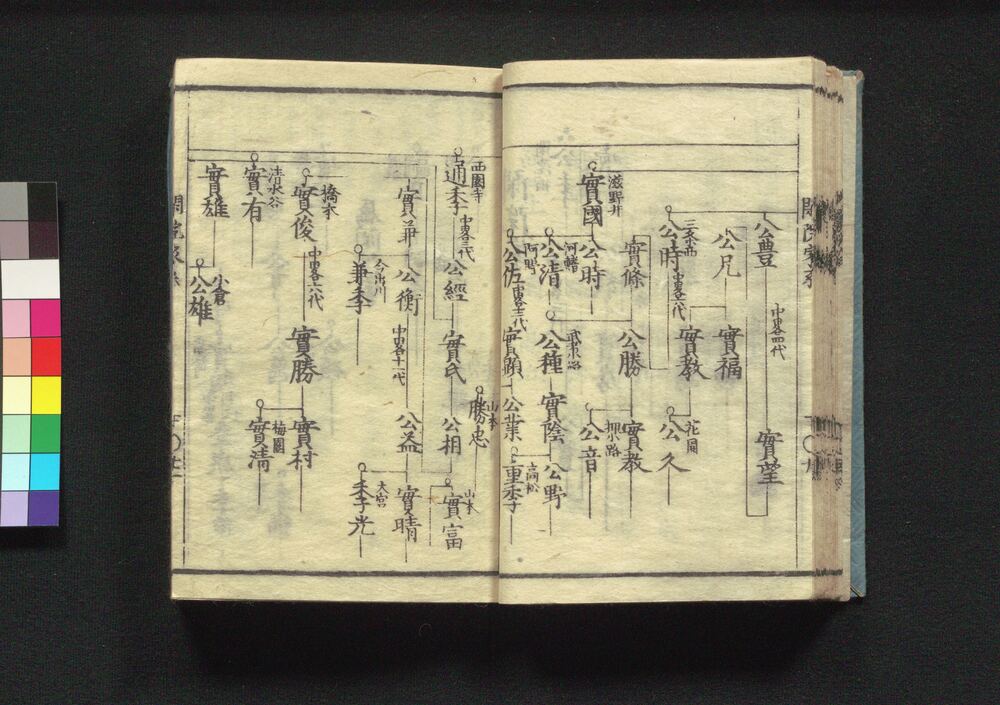 公豊
中畧四代
實望
公兄
實福
公時
三条西
中畧五代
實教
公久
花園
實條
公勝
實教
押小路
公音
滋野井
實國
公時
河鰭
公清
武者小路
公種
實陰
公野
阿野
公佐
中畧十二代
實顕
公業
高松
重季
西園寺
通季
中畧三代
公經
實氏
公相
山本
勝忠
山本
實富
實兼
公衡
中畧十一代
公益
實晴
今出川
兼季
大宮
季光
橋本
實俊
中畧六代
實勝
實村
梅園
實清
清水谷
實有
實雄
小倉
公雄